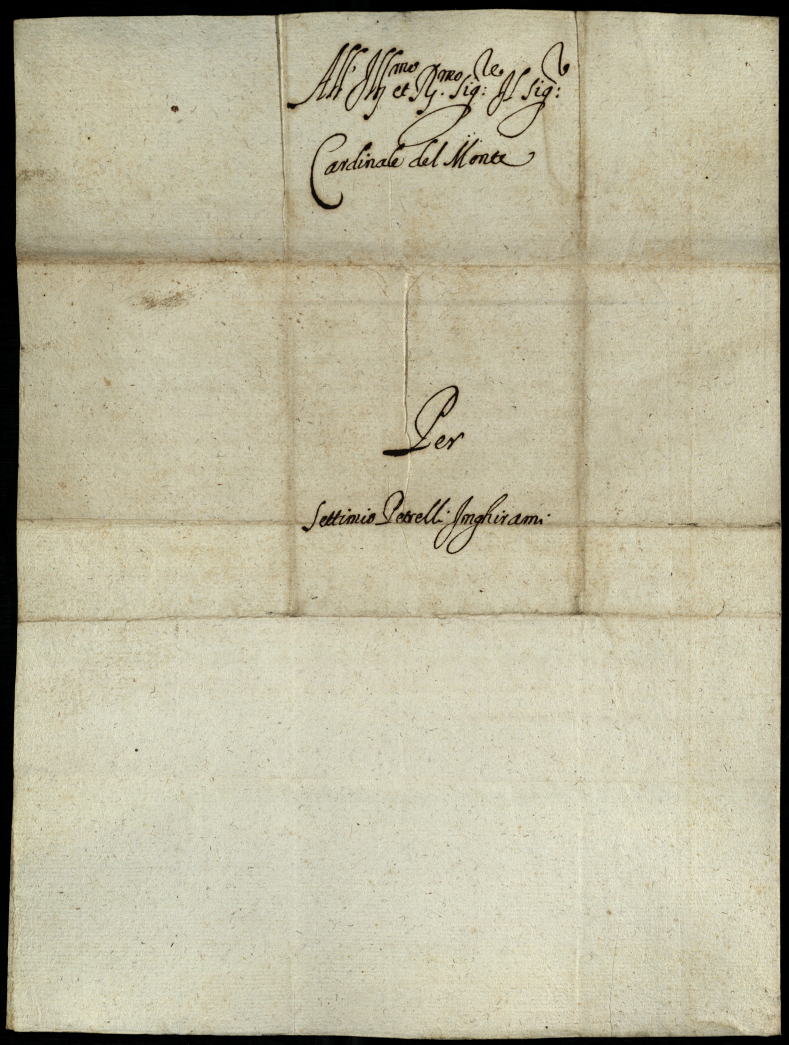 All' Ill.mo et R.mo Sig:re Il Sig:r
Cardinale del Monte
Per
Settimio Petrelli Inghirami